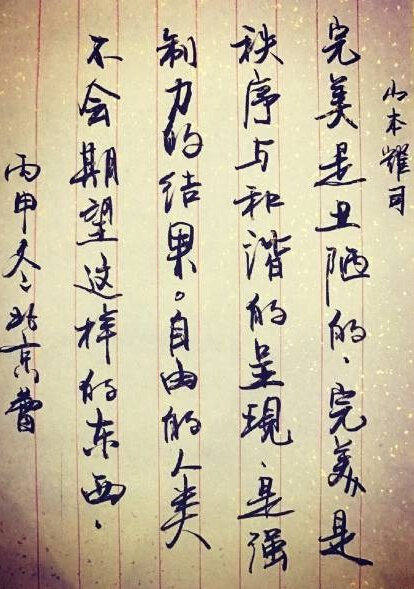 山本耀司
完美是丑陋的、完美是
秩序与和谐的呈现、是强
制力的结果。自由的人类
不会期望这样的东西。
丙申冬、北京